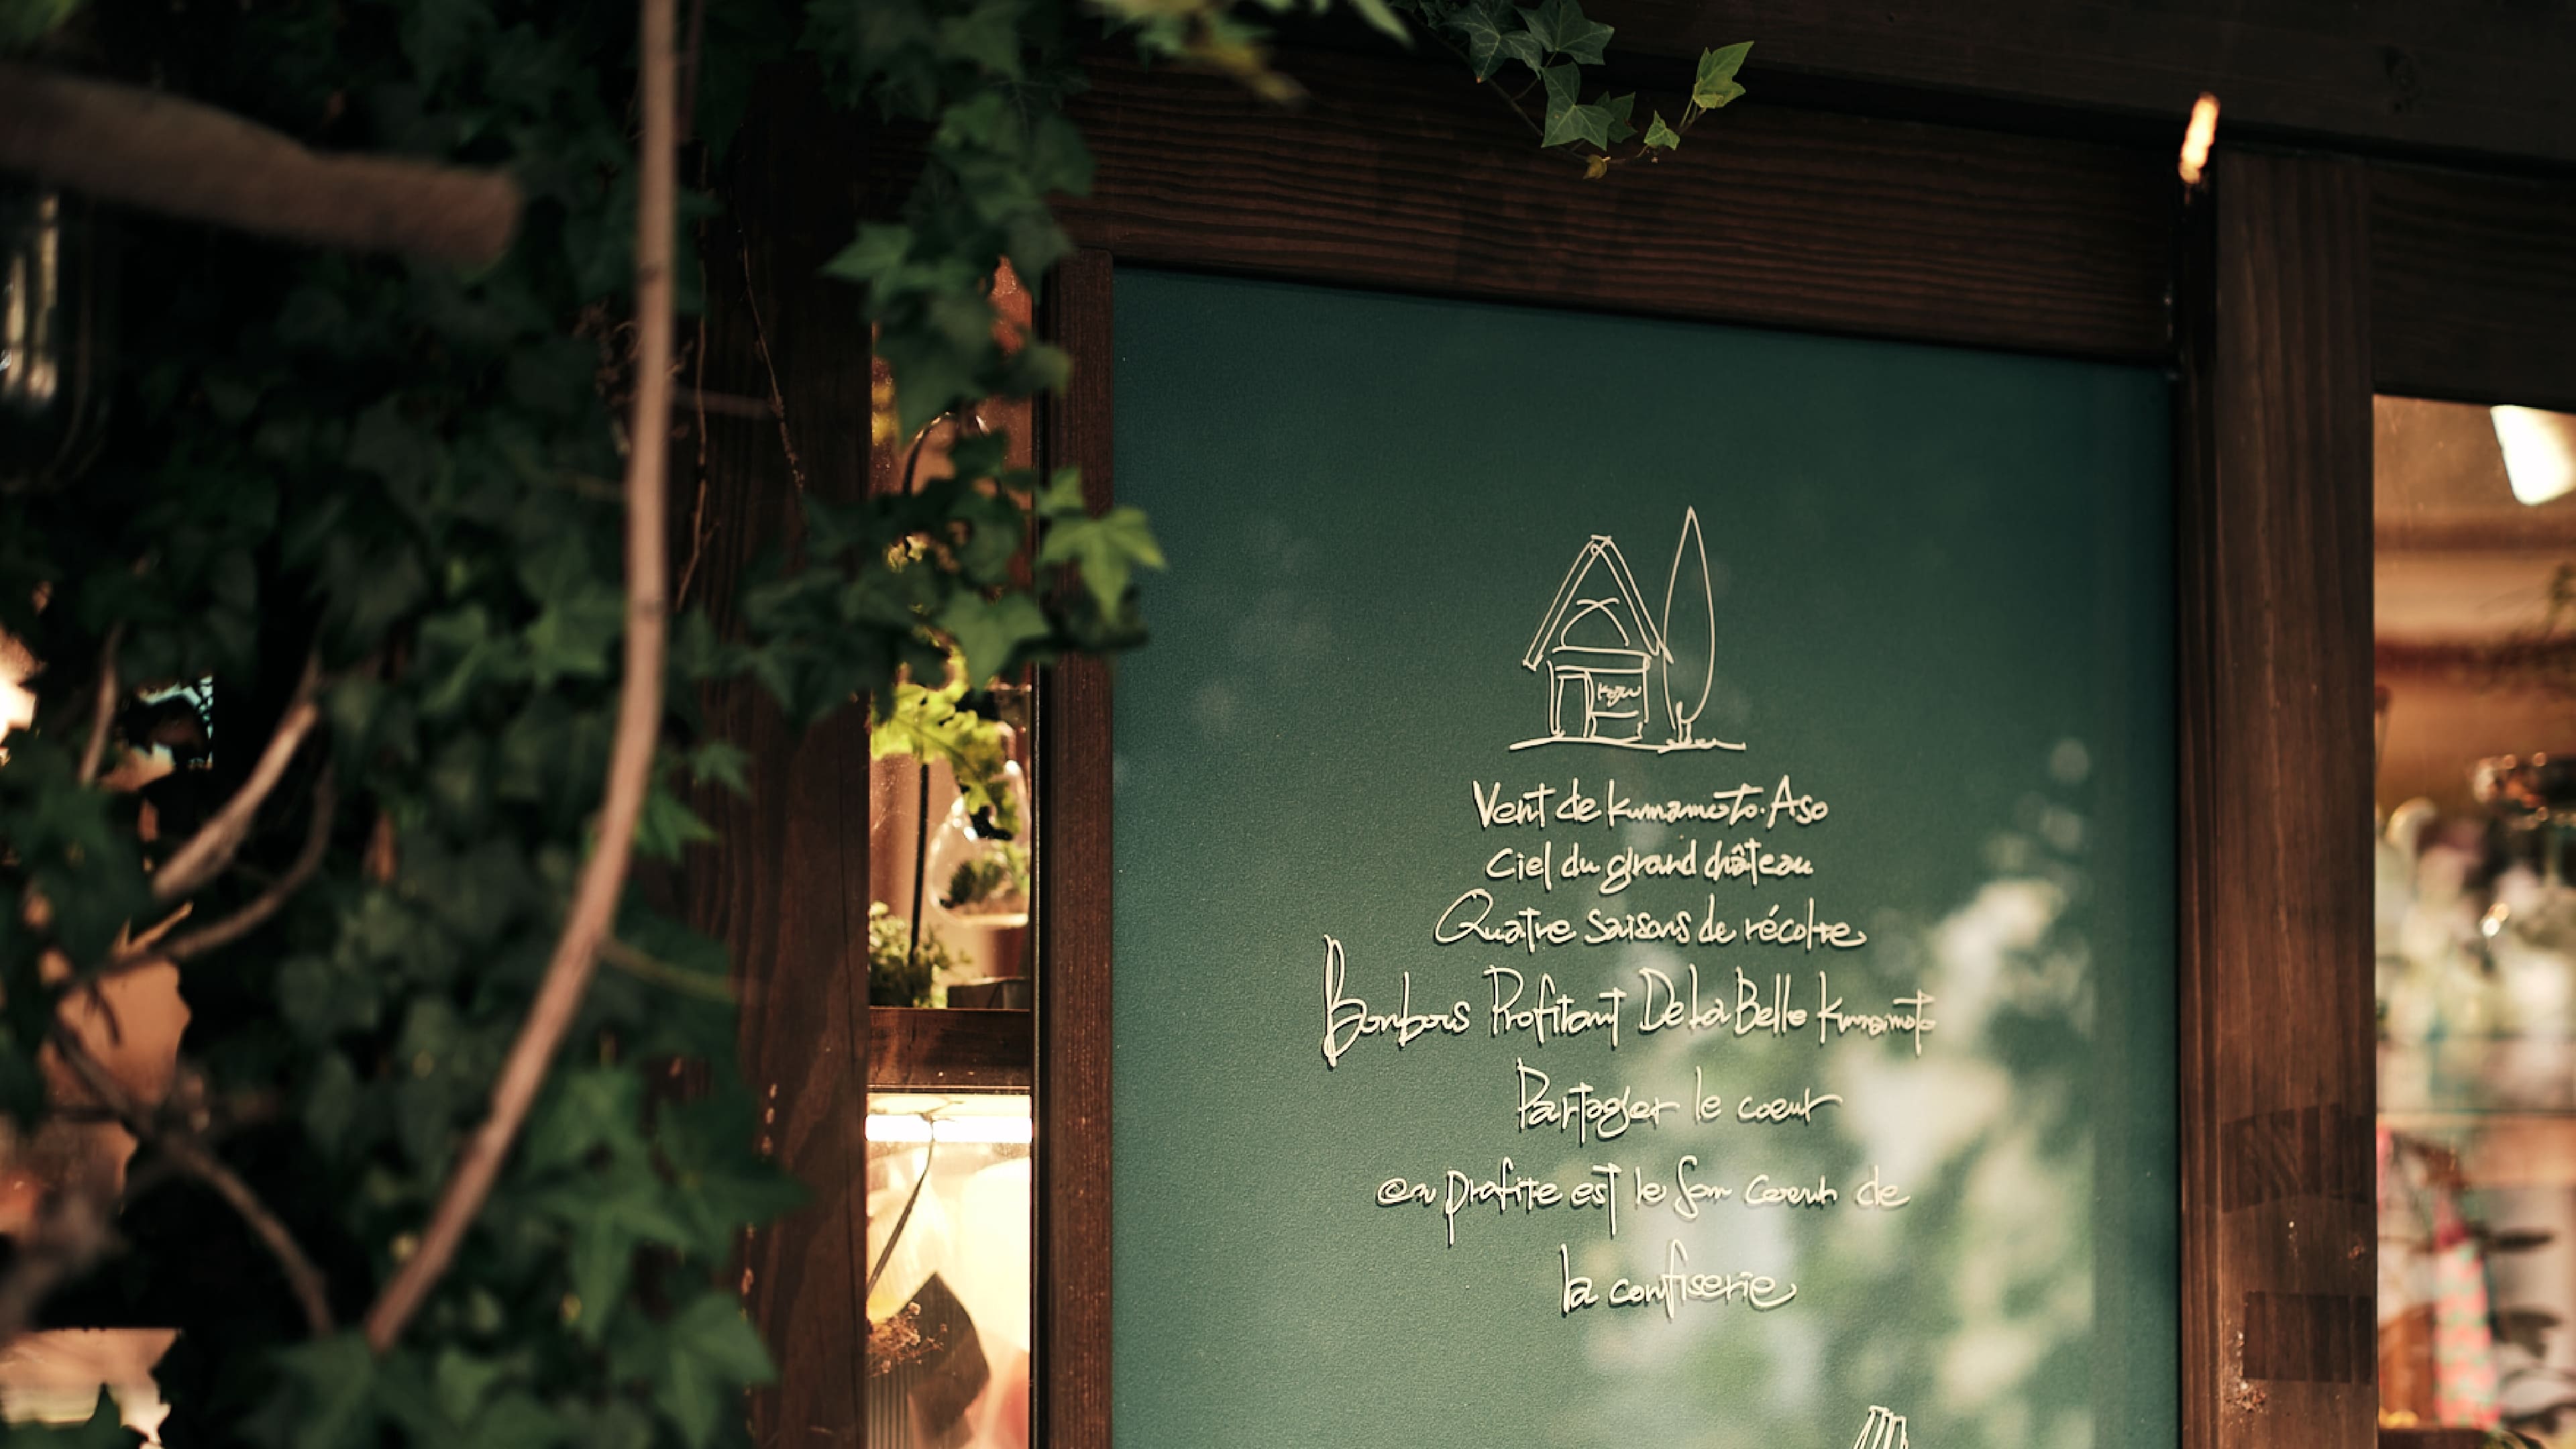 Vent de Kumamoto. Aso
Ciel du grand château
Quatre saisons de récolte
Bonbons Profitant De La Belle Kumamoto
Partager le coeur
en profite est le coeur de
la confiserie